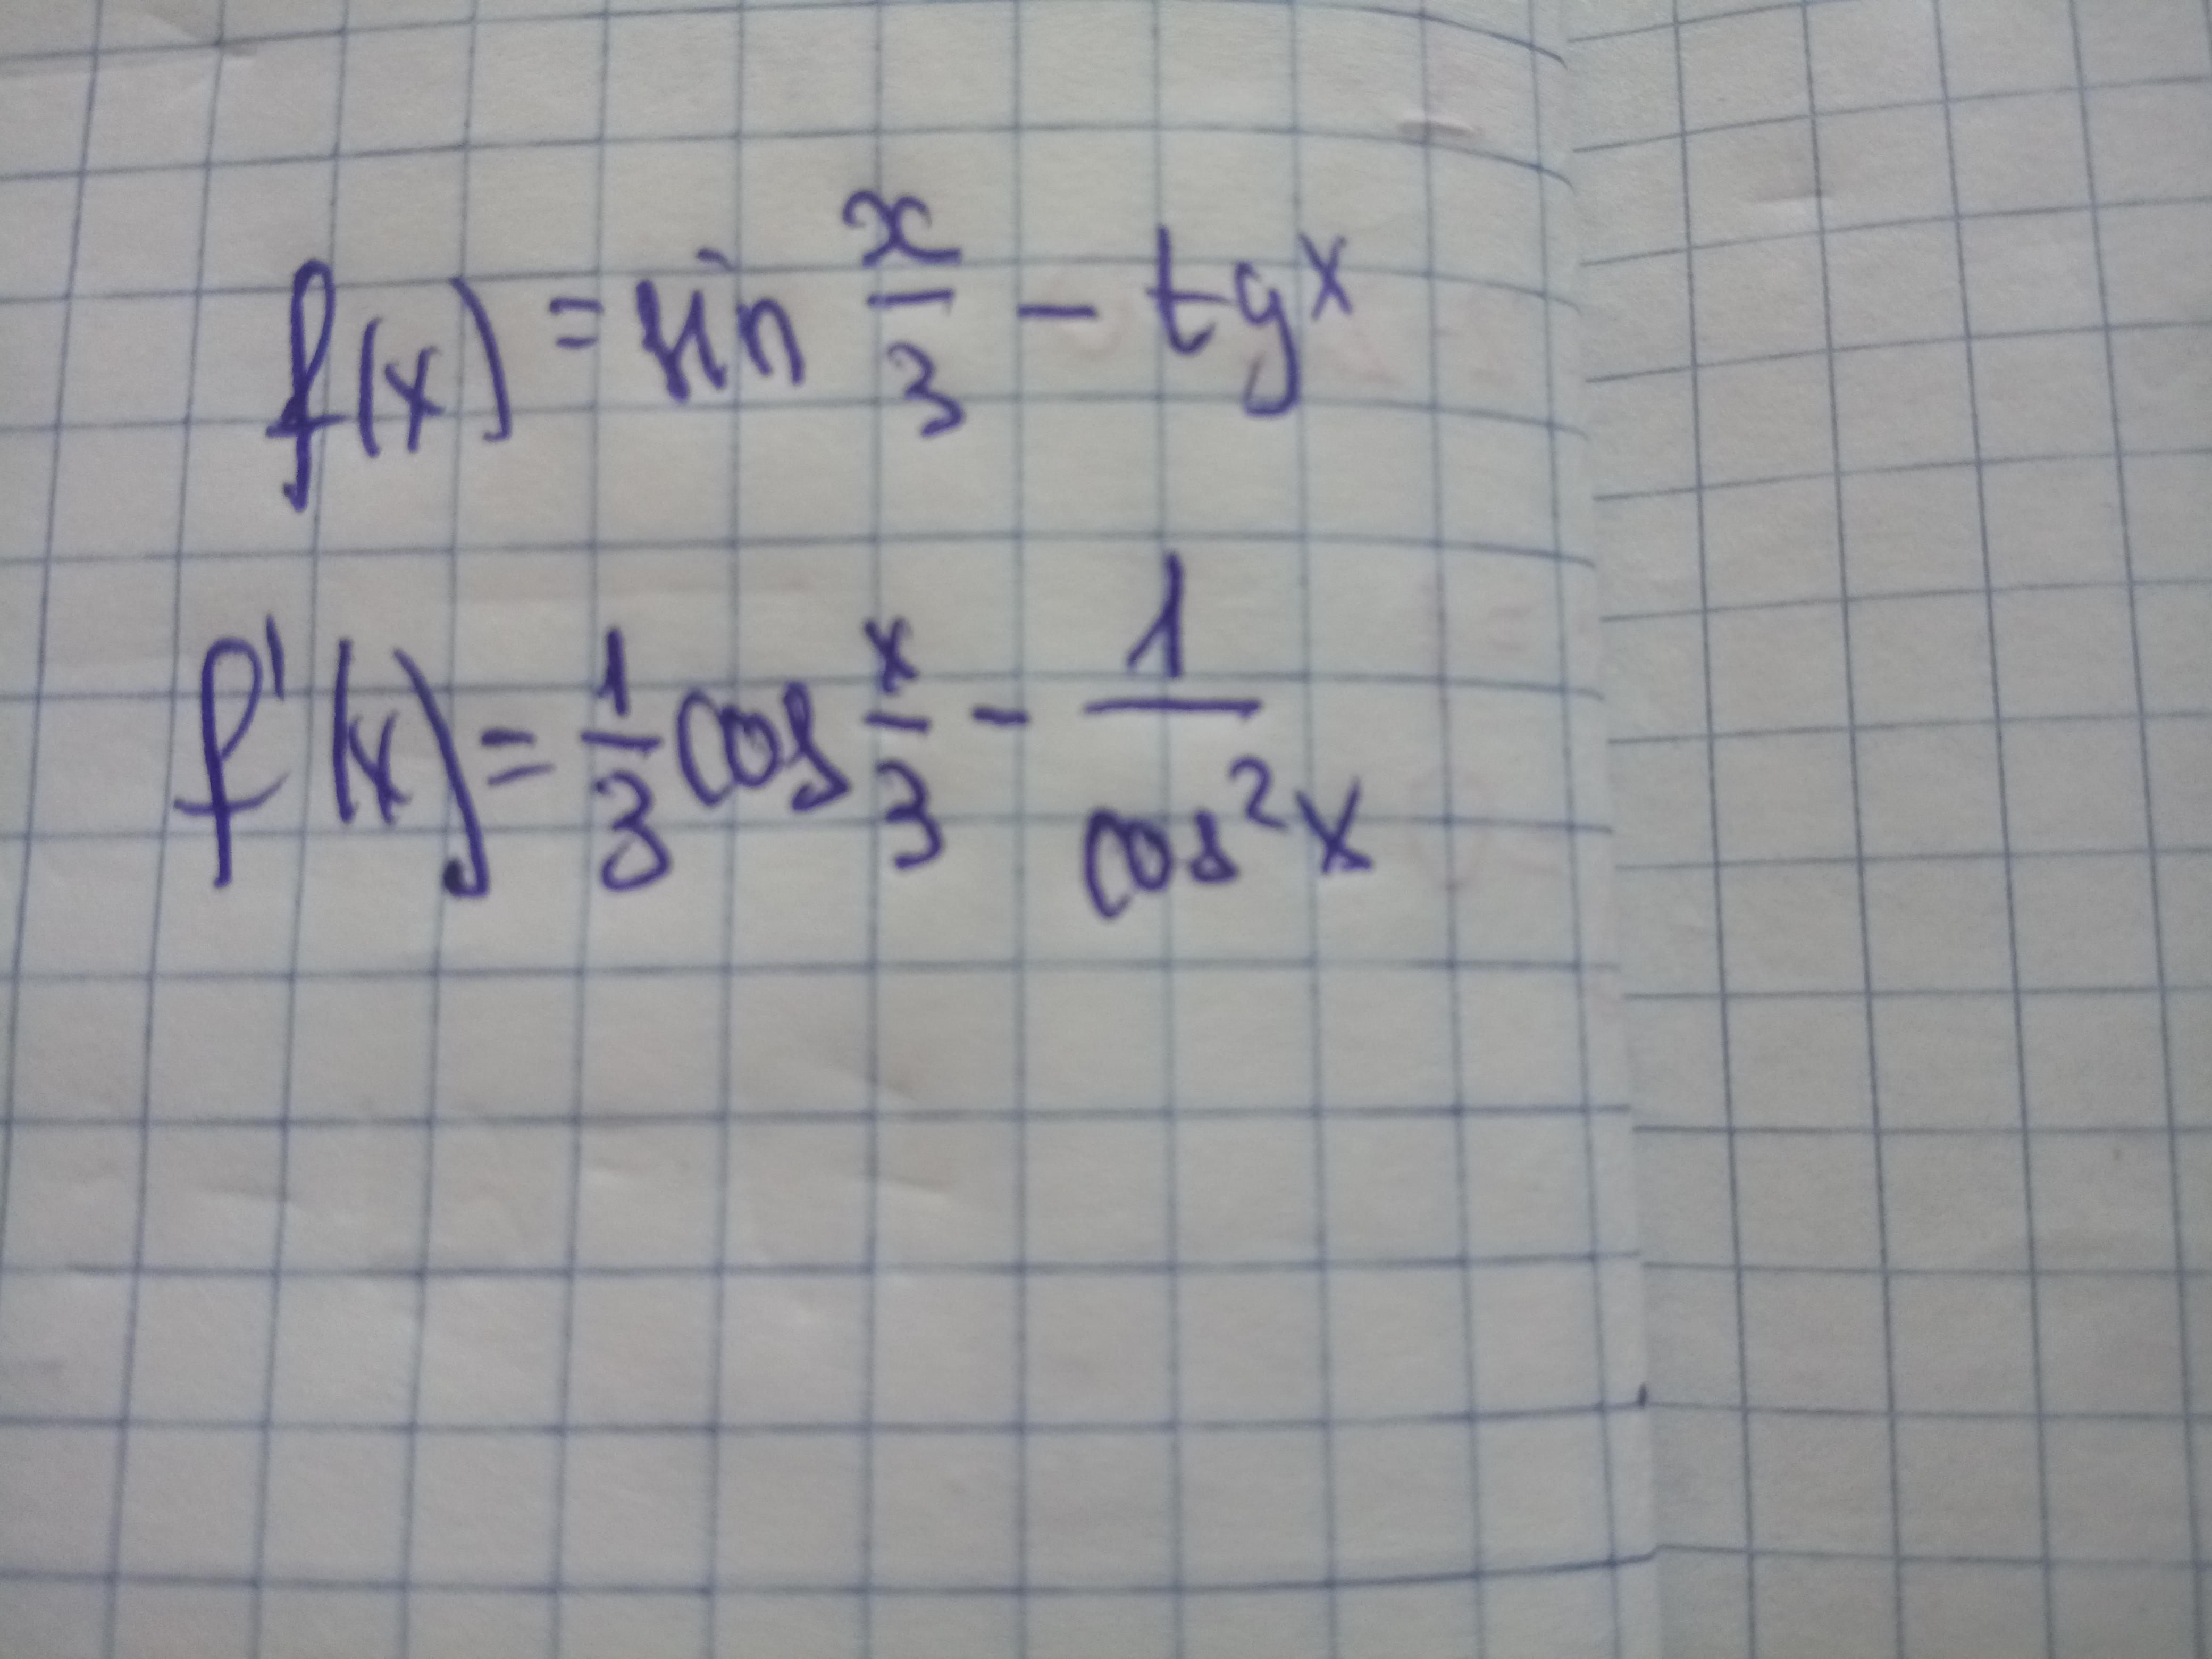 f(x) = sin x/3 - tg x
f'(x) = 1/3 cos x/3 - 1/cos²x